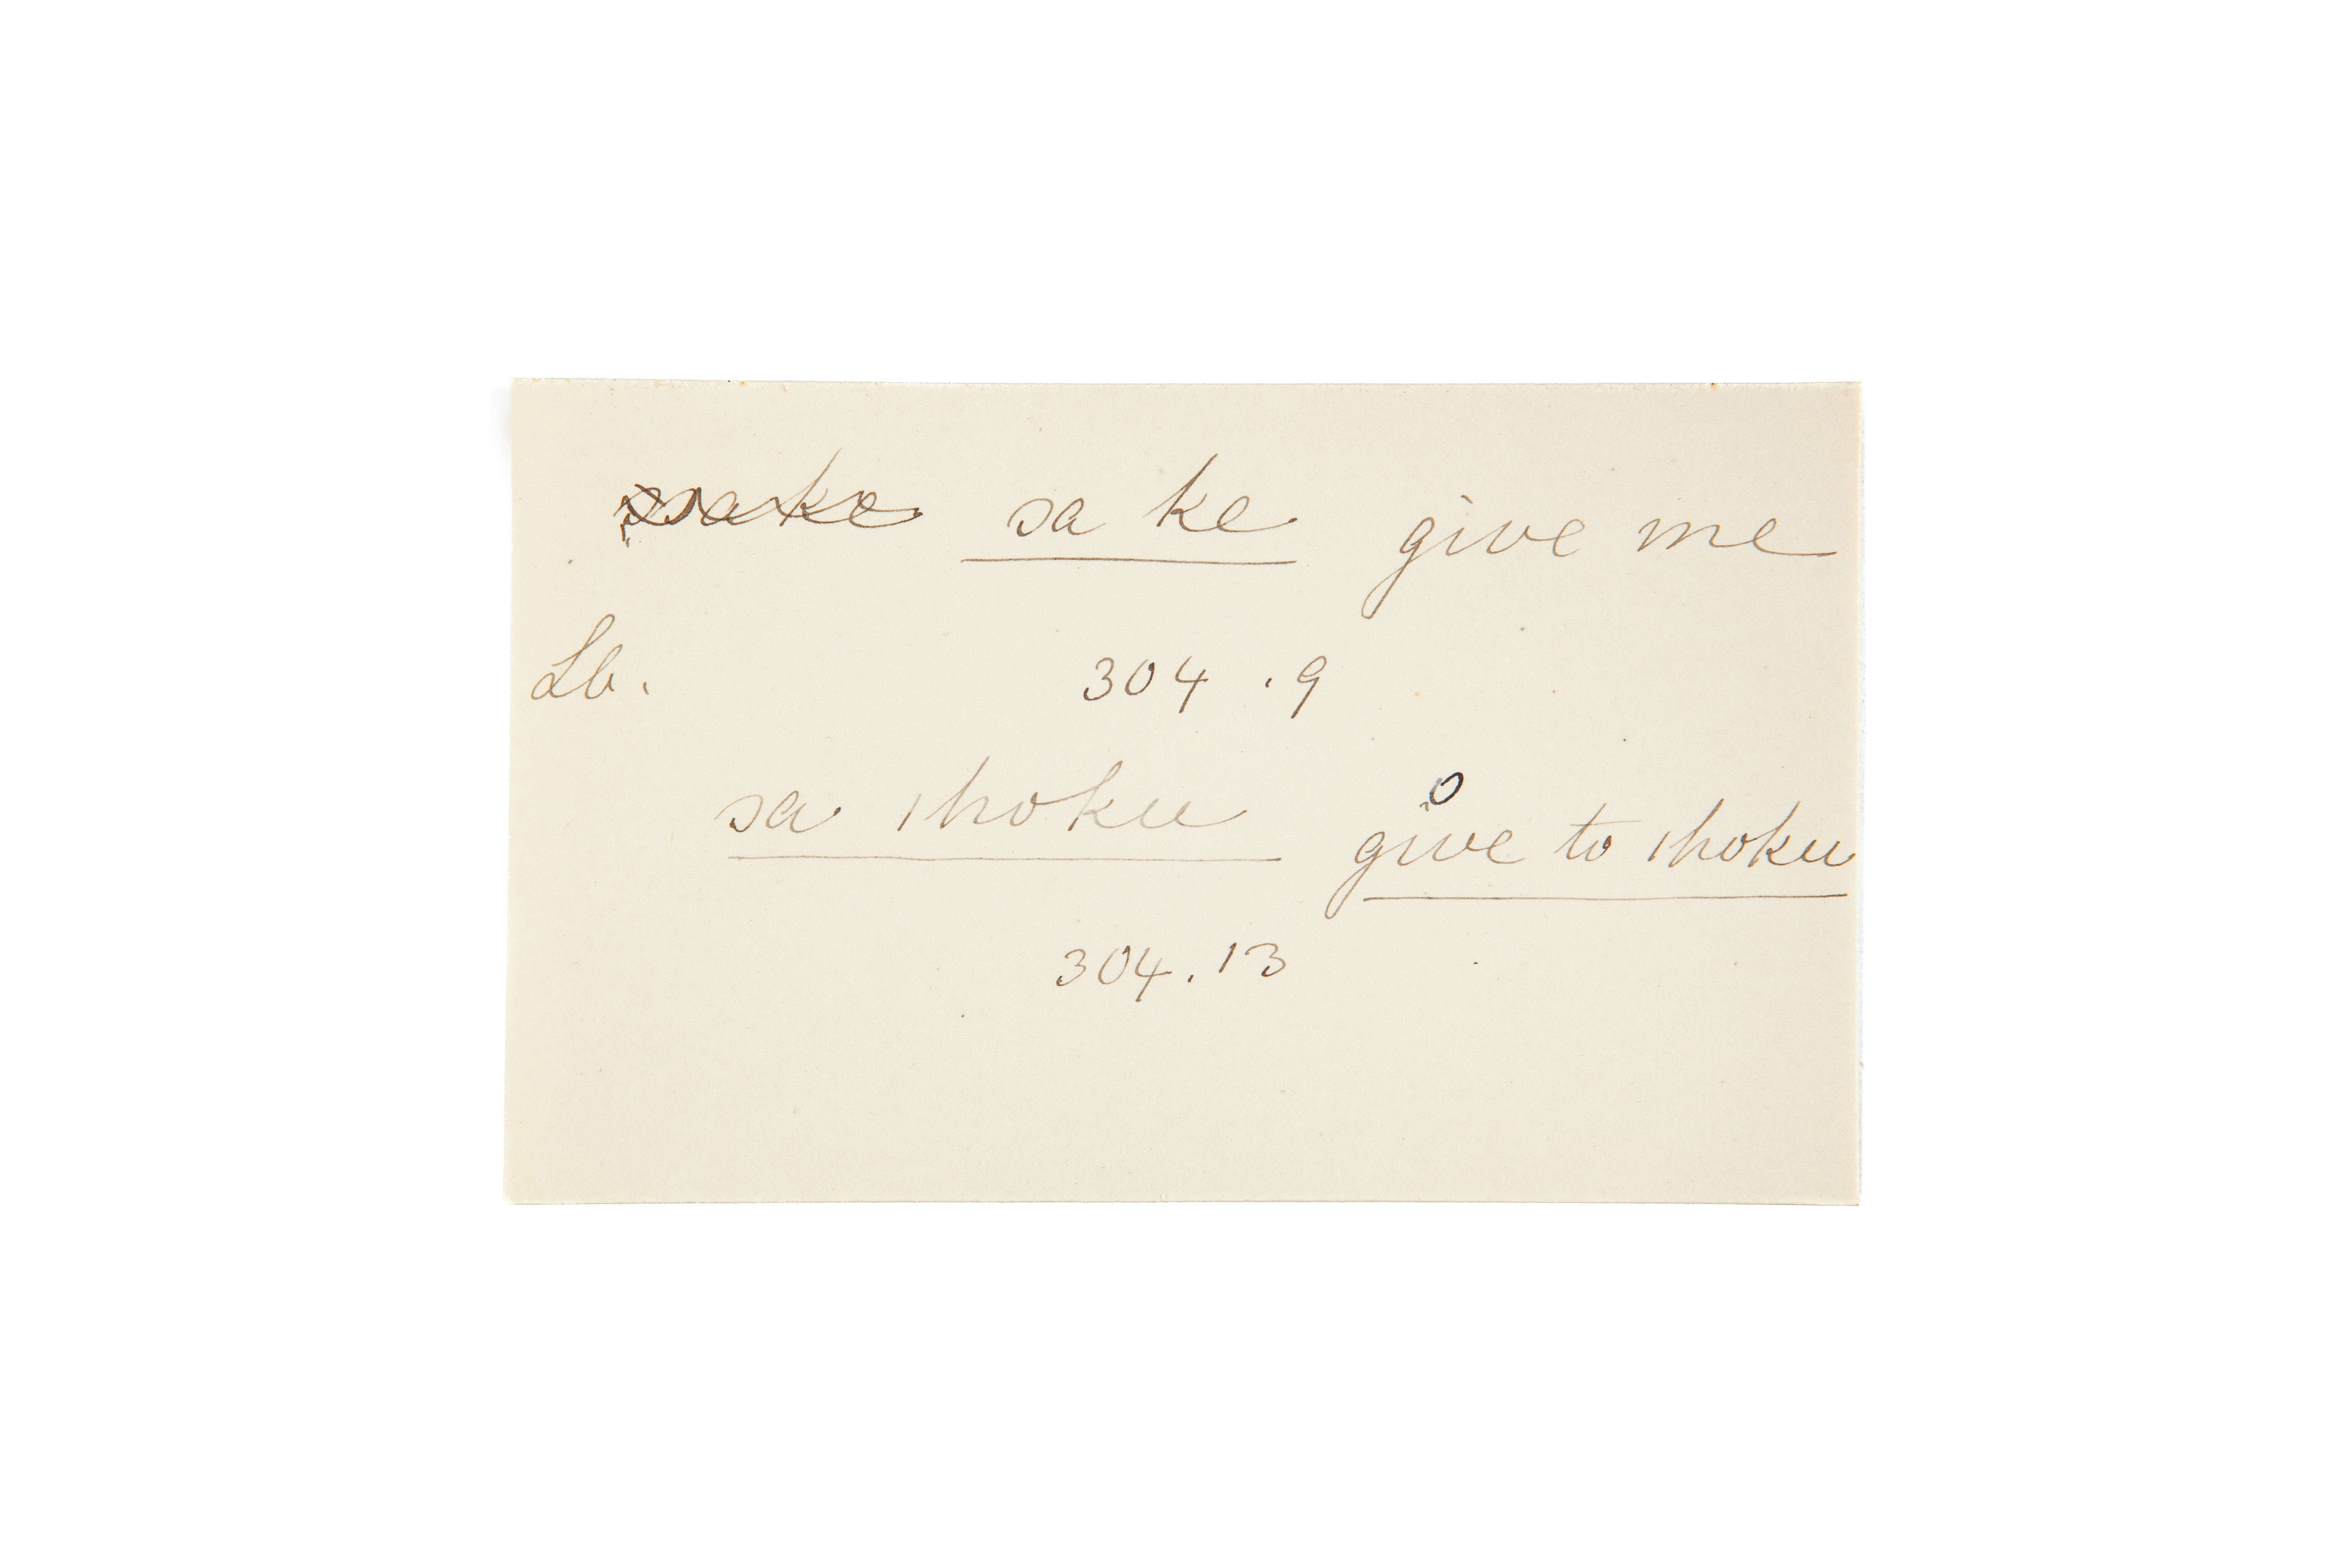 sa ke give me
Lb. 304.9
sa |hoku give to |hoku
304.13